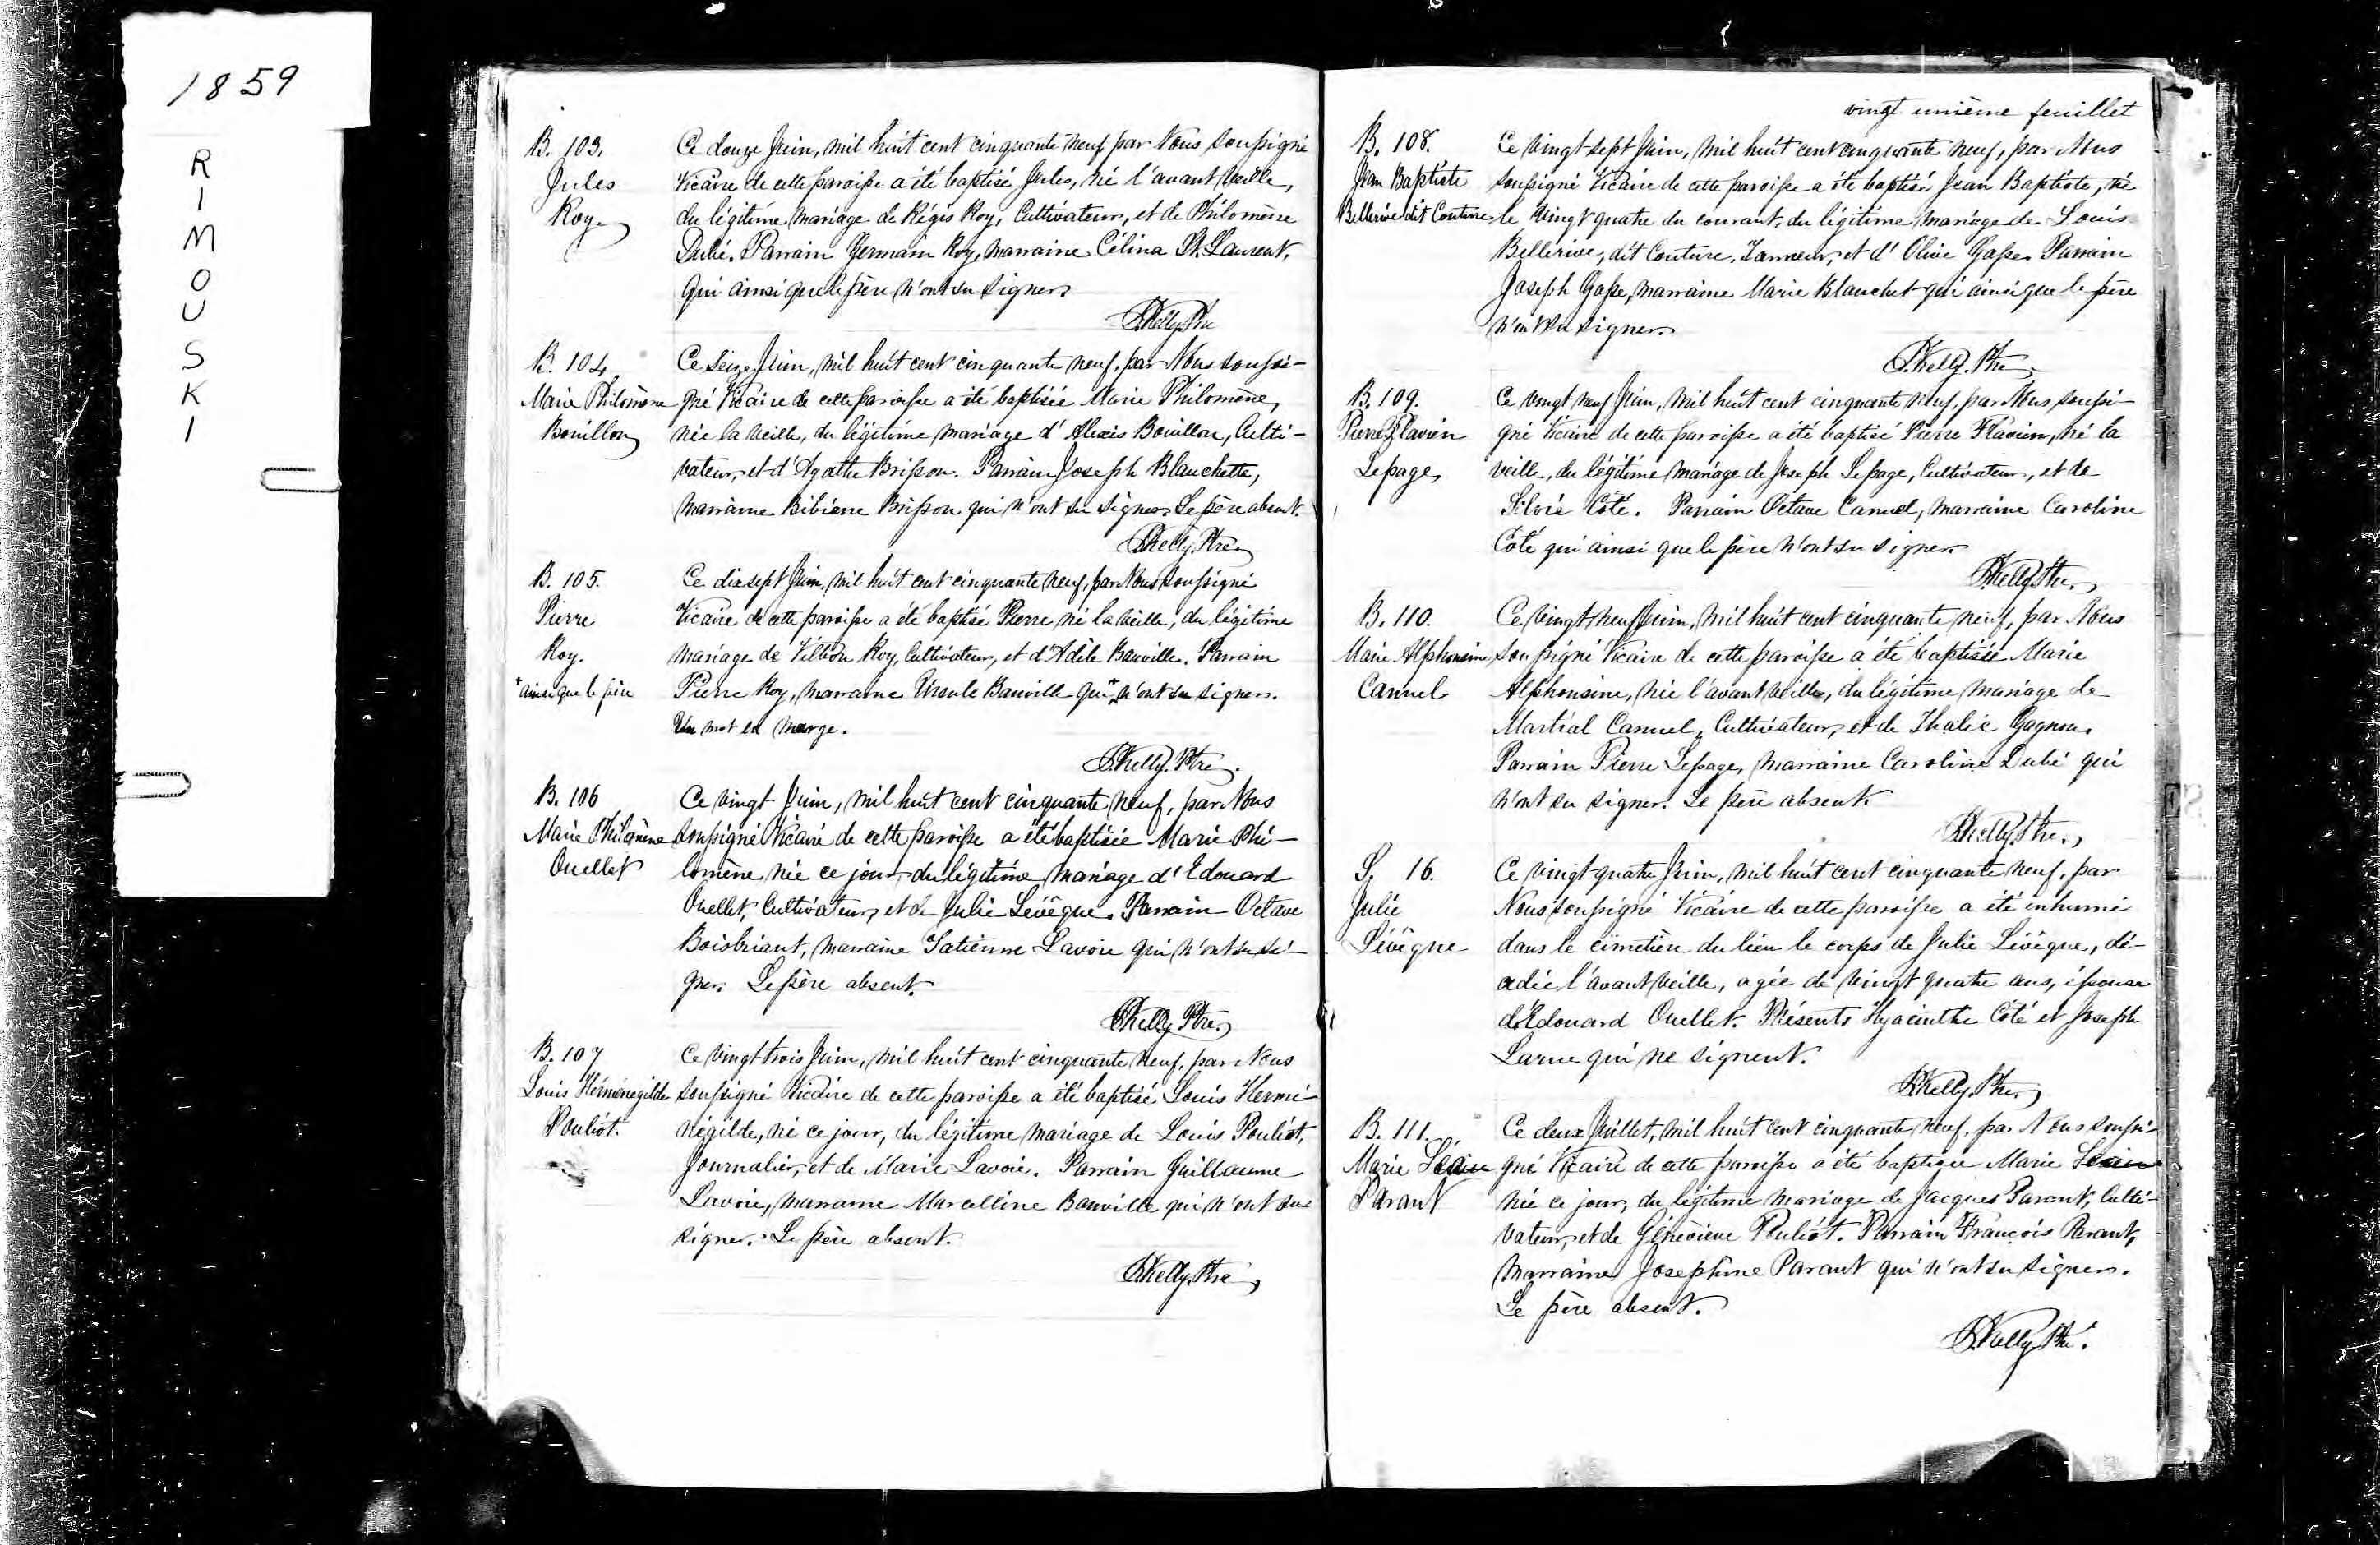 1859
RIMOUSKI
B. 103.
Jules
Roy
Ce douze Juin, mil huit cent cinquante neuf par Nous soussigné
Vicaire de cette paroisse a été baptisé Jules, né l'avant veille,
du légitime mariage de Régis Roy, Cultivateur, et de Philomène
Dubé. Parrain Germain Roy, marraine Célina St. Laurent,
qui ainsi que le père n'ont su signer.
PKelly Ptre
B. 104
Marie Philomène
Bouillon
Ce seize Juin, mil huit cent cinquante neuf, par Nous soussi-
gné Vicaire de cette paroisse a été baptisée Marie Philomène,
née la veille, du légitime mariage d'Alexis Bouillon, Culti-
vateur, et d'Agathe Brisson. Parrain Joseph Blanchette,
marraine Bibiène Brisson qui n'ont su signer. Le père absent.
PKelly Ptre
B. 105.
Pierre
Roy.
+ ainsi que le père
Ce dix sept Juin, mil huit cent cinquante neuf, par Nous soussigné
Vicaire de cette paroisse a été baptisé Pierre né la veille, du légitime
mariage de Vilbon Roy, Cultivateur, et d'Adèle Banville. Parrain
Pierre Roy, marraine Ursule Banville qui + n'ont su signer.
Un mot en marge.
PKelly. Ptre.
B. 106
Marie Philomène
Ouellet
Ce vingt Juin, mil huit cent cinquante neuf, par Nous
soussigné Vicaire de cette paroisse a été baptisée Marie Phi-
lomène née ce jour, du légitime mariage d'Edouard
Ouellet, Cultivateur, et de Julie Levêque. Parrain Octave
Boisbriant, marraine Tatienne Lavoie qui n'ont su si-
gner. Le père absent.
PKelly Ptre
B. 107
Louis Herménégilde
Pouliot.
Ce vingt trois Juin, mil huit cent cinquante neuf, par Nous
soussigné Vicaire de cette paroisse a été baptisé Louis Hermé-
négilde, né ce jour, du légitime mariage de Louis Pouliot,
Journalier, et de Marie Lavoie. Parrain Guillaume
Lavoie, marraine Marcelline Banville qui n'ont su
signer. Le père absent.
PKelly. Ptre
vingt unième feuillet
B. 108.
Jean Baptiste
Bellerive dit Couture
Ce vingt sept Juin, mil huit cent cinquante neuf, par Nous
soussigné Vicaire de cette paroisse a été baptisé Jean Baptiste, né
le vingt quatre du courant, du légitime mariage de Louis
Bellerive, dit Couture, Tanneur, et d'Olive Gasse. Parrain
Joseph Gasse, marraine Marie Blanchet qui ainsi que le père
n'ont su signer.
PKelly. Ptre
B. 109.
Pierre Flavien
Lepage
Ce vingt neuf Juin, mil huit cent cinquante neuf, par Nous soussi-
gné Vicaire de cette paroisse a été baptisé Pierre Flavien, né la
veille, du légitime mariage de Joseph Lepage, Cultivateur, et de
Silvie Côté. Parrain Octave Canuel, marraine Caroline
Côté qui ainsi que le père n'ont su signer.
PKelly Ptre.
B. 110.
Marie Alphonsine
Canuel
Ce vingt neuf Juin, mil huit cent cinquante neuf, par Nous
soussigné Vicaire de cette paroisse a été baptisée Marie
Alphonsine, née l'avant veille, du légitime mariage de
Martial Canuel, Cultivateur, et de Thalie Gagnon.
Parrain Pierre Lepage, marraine Caroline Dubé qui
n'ont su signer. Le père absent.
PKelly. Ptre.
S. 16.
Julie
Levêque
Ce vingt quatre Juin, mil huit cent cinquante neuf, par
Nous soussigné Vicaire de cette paroisse a été inhumé
dans le cimetière du lieu le corps de Julie Levêque, dé-
cédée l'avant veille, agée de vingt quatre ans, épouse
d'Edouard Ouellet. Présents Hyacinthe Côté et Joseph
Larue qui ne signent.
PKelly. Ptre
B. 111.
Marie
Parant
Ce deux Juillet, mil huit cent cinquante neuf, par Nous soussi-
gné Vicaire de cette paroisse a été baptisée Marie
née ce jour, du légitime mariage de Jacques Parant, Culti-
vateur, et de Géneviève Pouliot. Parrain François Parant,
marraine Josephine Parant qui n'ont su signer.
Le père absent.
PKelly Ptre.